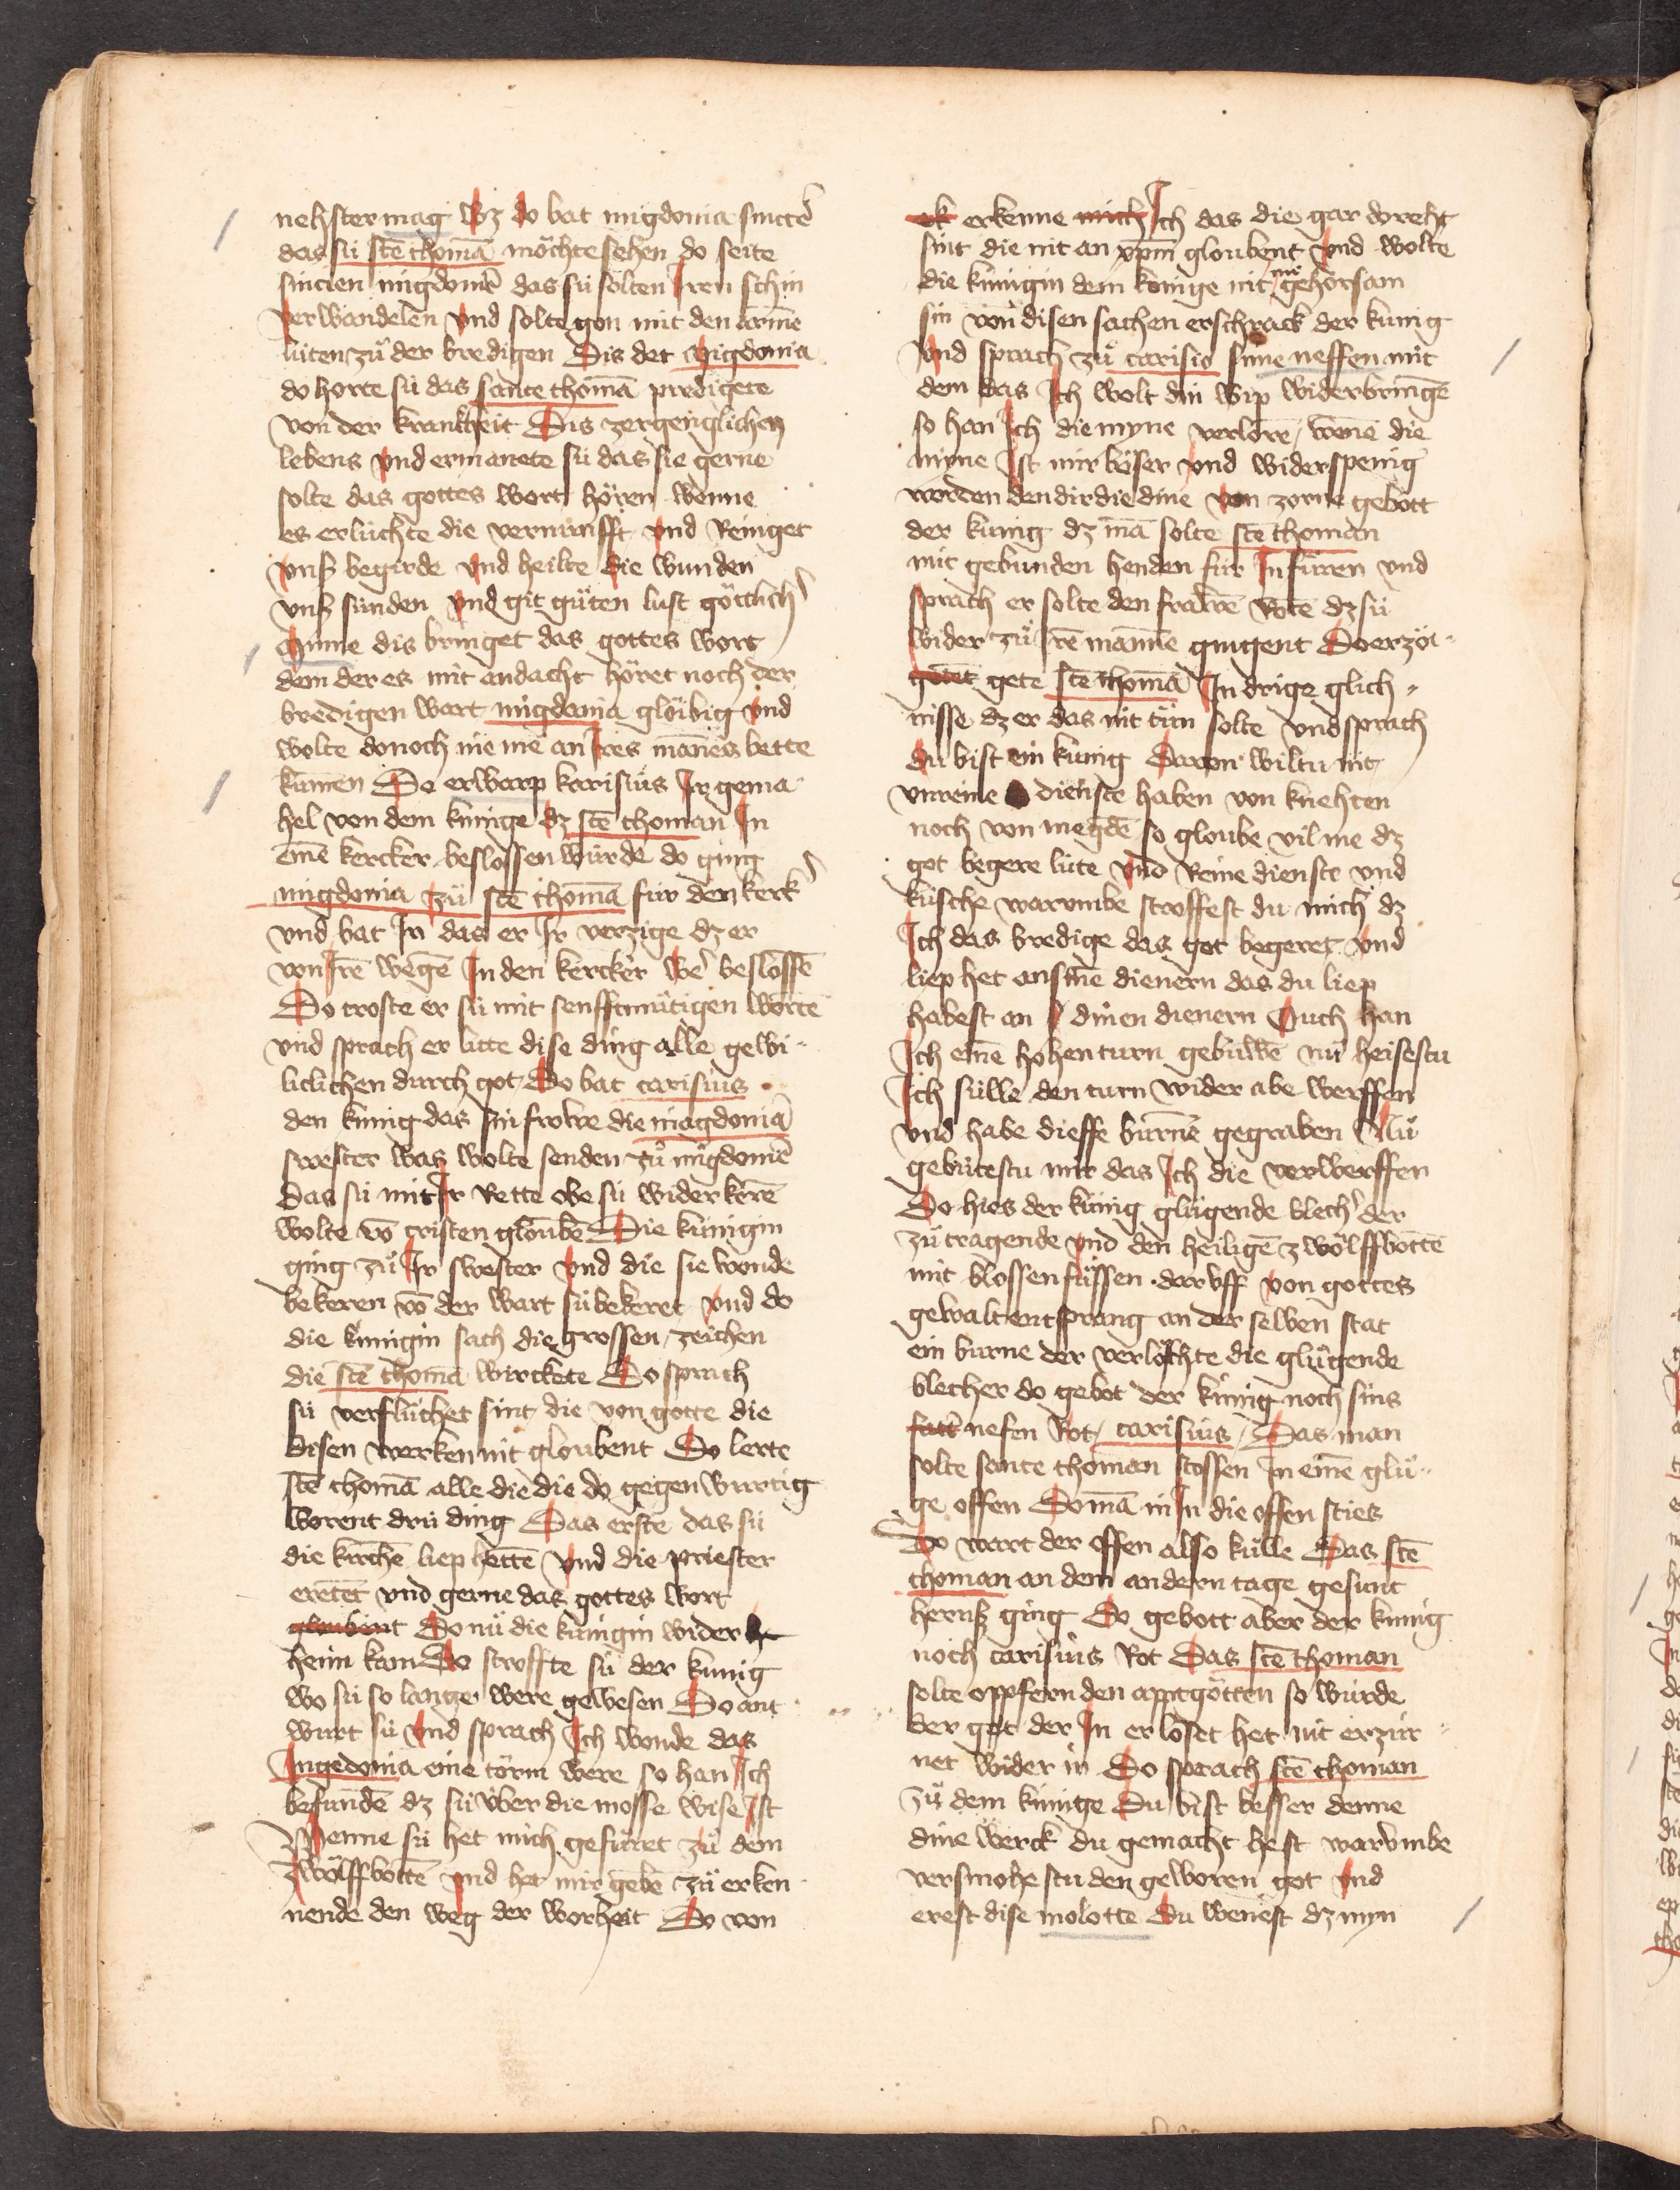 nehster mag wz do bat migdonia sinttē
das sü stē thomā möchte sehen do seite
sincien migdoniē das sü sölten Iren schin
verwandelen vnd solte gon mit den armē
lüten zů der bredigen Dis det Migdonia
do horte sü das sante thomā predigete
von der krankheit Dis zergenglichen
lebens vnd ermanete sü das sie gerne
solte das gottes wort hören wenne
es erluchte die vernunfft vnd Reiniget
vnß begirde vnd heilte die wunden
vnß sünden vnd git gůten lust göttlich
Minne dis bringet das gottes wort
dem der es mit andacht höret noch der
bredigen wart migdonia glöibig vnd
wolte donoch nie me an Ires mānes bette
kūmen Do erwarp karisius Ir gema
hel von dem künige dz stē thoman In
eine kercker beslossen würde do ging
migdonia zů stē thomā für den kerk
vnd bat In das er Ir verzige dz er
von Irē wegē In den kercker we beslossē
Do troste er sü mit senfftmütigen wortē
vnd sprach er litte dise ding alle gewi
liclichen durch got Do bat carisius
den künig das sin frowe die magdoniā
swester was wolte senden zů migdoniē
Das sü mit Ir Rette obe sü wider kerē
wolte vō cristen gloubē Die künigin
ging zů Ir swester vnd die sie wonde
bekeren vō der wart sü bekeret vnd do
die künigin sach die grossen zeichen
die stē thomā wirckete Do sprach
sü verflůchet sint die von gotte die
disen werken nit gloubent Do lerte
stē thomā alle die die do gegenwurtig
worent drü ding Das erste das sü
die kirchē liep hettē vnd die priester
eretēt vnd gerne das gottes wort
gloubent Do nů die künigin wider he
heim kam Do stroffte sü der künig
wo sü so lange were gewesen Do ant
wurt sü vnd sprach Ich wonde das
Ingedonia eine törin were so han Ich
befundē dz sü über die mosse wise Ist
Wenne sü het mich gefüret zů dem
zwölffbottē vnd het mir gebē zů erken
nende den weg der worheit Do von
ok erkenne mich Ich das die gar doreht
sint die nit an xpm gloubent vnd wolte
die künigin dem könige nit me gehorsam
sin von disen sachen erschrack der künig
vnd sprach zů carisio sine neffen mit
dem das Ich wolt din wip widerbringē
so han Ich die myne verlorē wene die
myne Ist mir böser vnd widerspenig
worden den dir die dine von zorne gebott
der künig dz mā solte stē thoman
mit gebunden henden für In füren vnd
sprach er solte den frawē Rotē dz sü
wider zů Irē mannē gingent Do erzöi
getet gete stē thomā In drige glich
nisse dz er das nit tůn solte vnd sprach
du bist ein künig Daron wiltu nit
vnreine dienste haben von knehten
noch von megdē so gloube vil me dz
got begere lute vnd Reine dienste vnd
küsche warumbe stroffest du mich dz
Ich das bredige das got begeret vnd
liep het an sinē dienern das du liep
habest an dinen dienern Ouch han
Ich einē hohen turn gebuwē nů heisestu
Ich sülle den turn wider abe werffen
vnd habe dieffe burnē gegraben Nů
gebütestu mir das Ich die verwerffen
Do hies der künig glügende blech der
zů tragende vnd den heiligē zwölffbottē
mit blossen füssen dar vff von gottes
gewalt entsprang an der selben stat
ein burne der verloschte die glügende
blecher do gebot der künig noch sins
fatt nefen Rot carisius Das man
solte sante thoman stossen In einē glü
ge offen Do mā in In die offen sties
Do wart der offen also külle Das stē
thoman an dem andern tage gesunt
heruß ging Do gebott aber der künig
noch carisius Rot Das stē thoman
solte oppfern den apptgötten so würde
der got der In erlöset het nit erzür
net wider in Do sprach stē thoman
zů dem künige Du bist besser denne
dine werck du gemacht hest warumbe
versmohestu den geworen got vnd
erest dise molotte du wenest dz myn